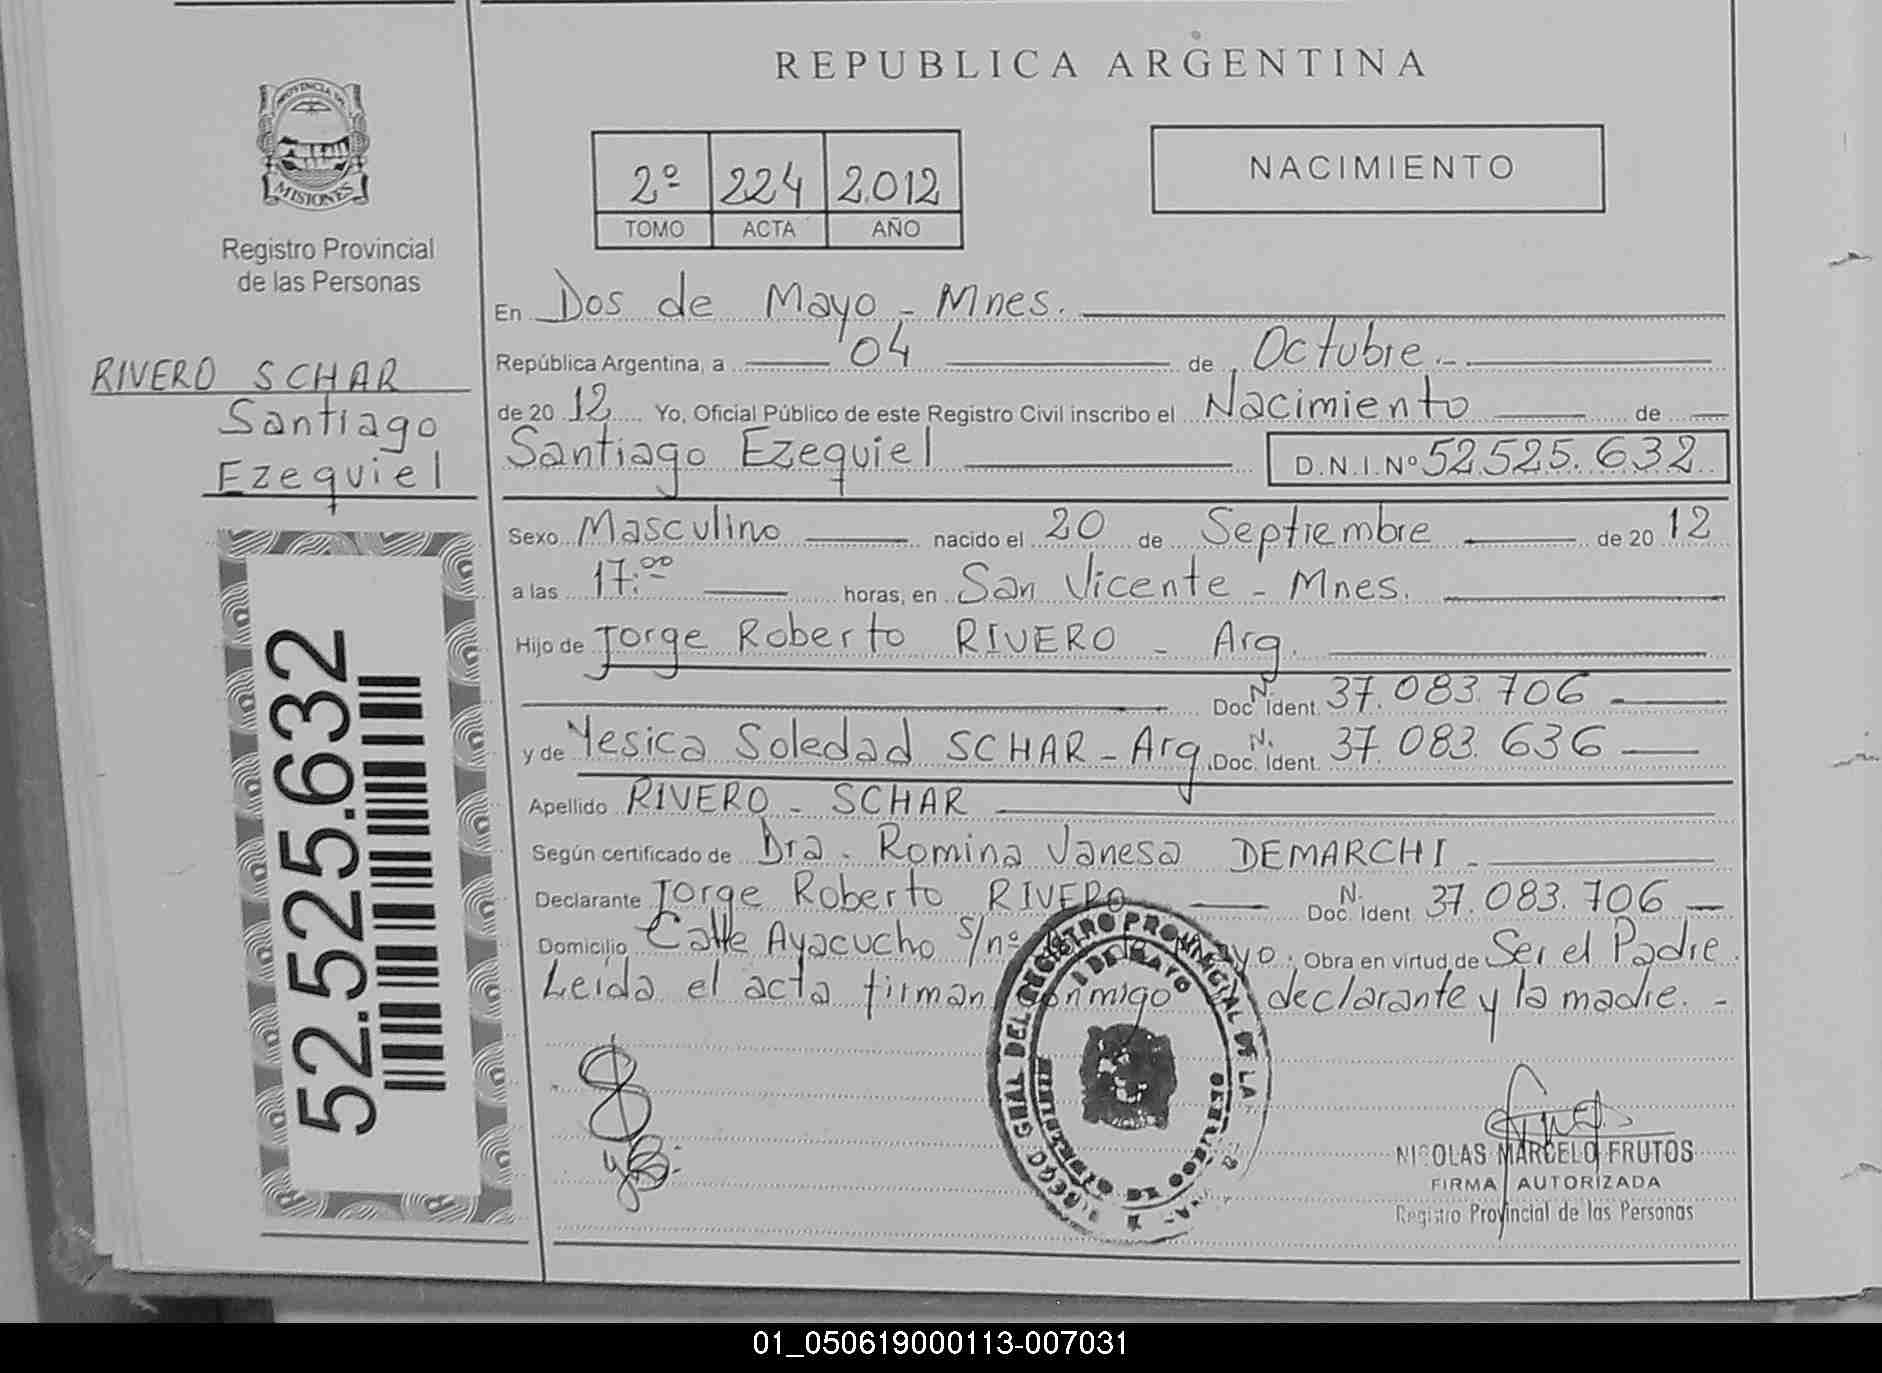 REPUBLICA ARGENTINA
PROVINCIA DE
MISIONES
Registro Provincial
de las Personas
2º 224 2.012
TOMO ACTA AÑO
NACIMIENTO
RIVERO SCHAR
Santiago
Ezequiel
52.525.632
En Dos de Mayo - Mnes.
República Argentina, a 04 de Octubre.-
de 20 12 Yo, Oficial Público de este Registro Civil inscribo el Nacimiento de
Santiago Ezequiel D.N.I.Nº 52.525.632
Sexo Masculino nacido el 20 de Septiembre de 20 12
a las 17:00 horas, en San Vicente - Mnes.
Hijo de Jorge Roberto RIVERO - Arg.
Doc. N. Ident. 37.083.706
y de Yesica Soledad SCHAR - Arg. Doc. N. Ident. 37.083.636
Apellido RIVERO - SCHAR
Según certificado de Dra. Romina Vanesa DEMARCHI -
Declarante Jorge Roberto RIVERO Doc. N. Ident. 37.083.706
Domicilio Calle Ayacucho S/nº yo. Obra en virtud de Ser el Padre.
Leida el acta firman conmigo declarante y la madre. -
REGISTRO PROVINCIAL DE LA
2 DE MAYO
NICOLAS MARCELO FRUTOS
FIRMA AUTORIZADA
Registro Provincial de las Personas
01_050619000113-007031